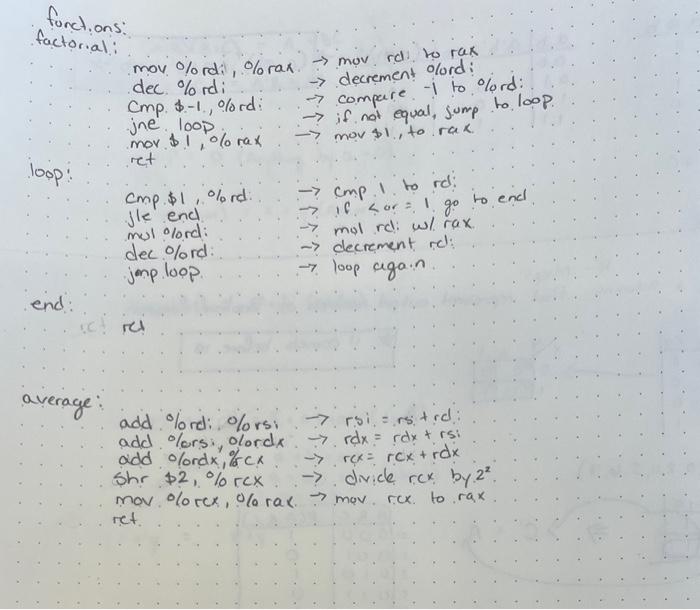 functions:
factorial:
mov %rdi, %rax → mov rdi to rax
dec %rdi → decrement %rdi
cmp $-1, %rdi → compare -1 to %rdi
jne loop → if not equal, jump to loop
mov $1, %rax → mov $1, to rax
ret
loop:
cmp $1, %rdi → cmp 1 to rdi
jle end → if < or = 1 go to end
mul %rdi → mul rdi w/ rax
dec %rdi → decrement rdi
jmp loop → loop again
end:
ret
average:
add %rdi, %rsi → rsi = rsi + rdi
add %rsi, %rdx → rdx = rdx + rsi
add %rdx, %rcx → rcx = rcx + rdx
shr $2, %rcx → divide rcx by 2²
mov %rcx, %rax → mov rcx to rax
ret